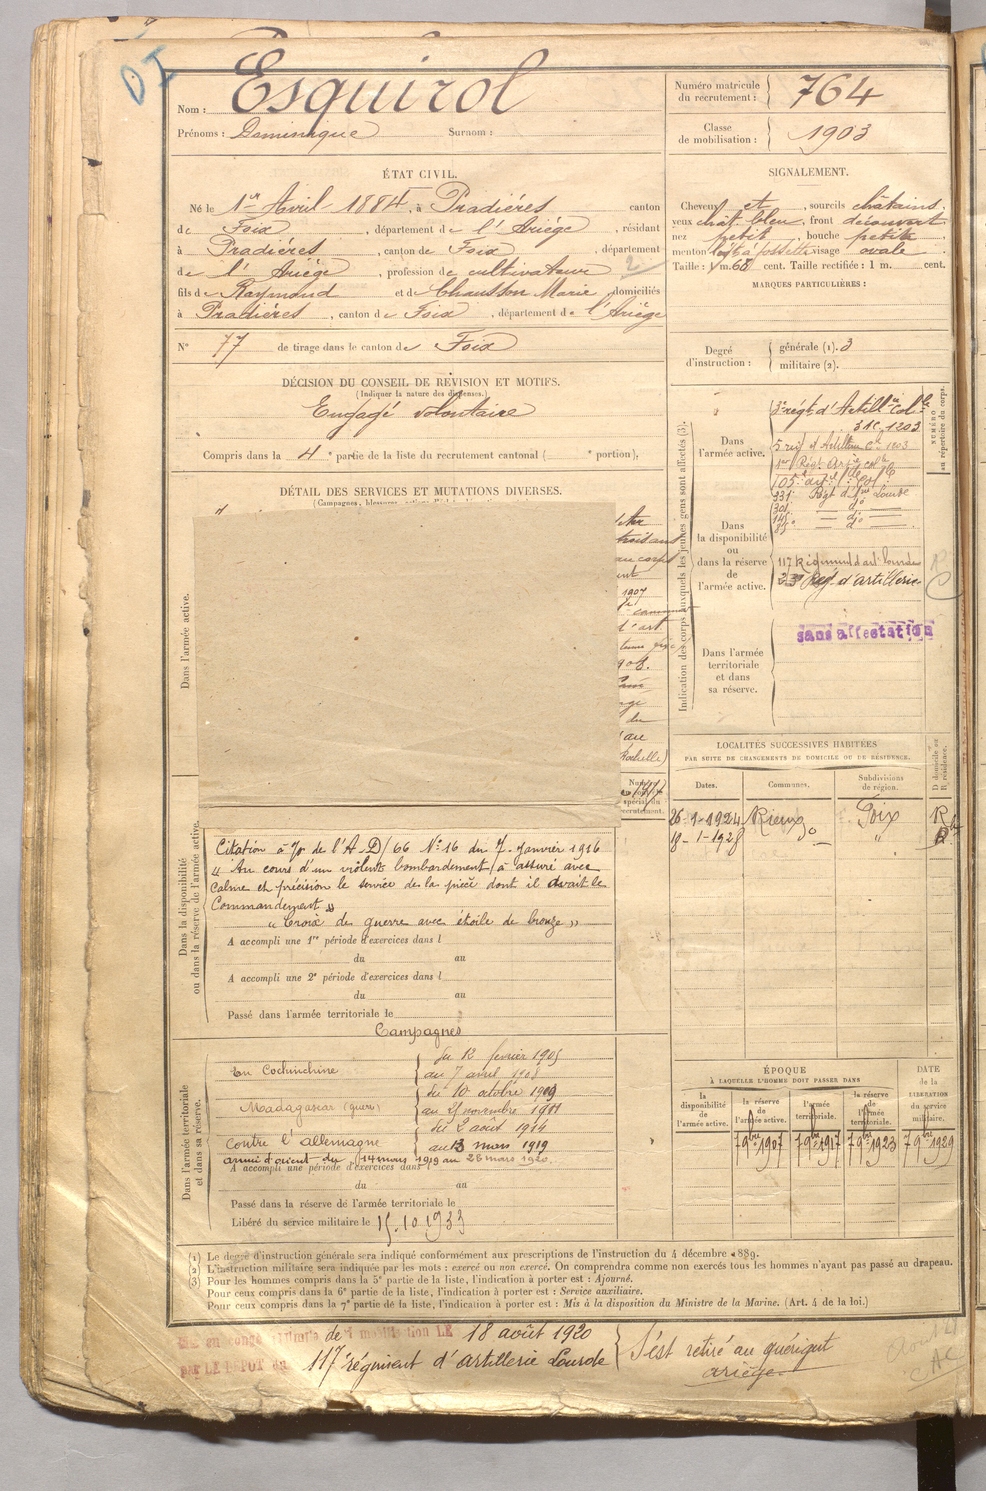 Nom : Esquirol
Prénoms : Dominique Surnom :
Numéro matricule du recrutement : 764
Classe de mobilisation : 1903
ÉTAT CIVIL.
Né le 1er Avril 1884, à Pradières canton
de Foix, département de l'Ariège, résidant
à Pradières, canton de Foix, département
de l'Ariège, profession de cultivateur
fils de Raymond et de Chausson Marie domiciliés
à Pradières, canton de Foix, département de l'Ariège
N° 77 de tirage dans le canton de Foix
SIGNALEMENT.
Cheveux et, sourcils châtains
yeux chât. bleu, front découvert
nez petit, bouche petite,
menton à fossette visage ovale
Taille : 1 m. 68 cent. Taille rectifiée : 1 m. cent.
MARQUES PARTICULIÈRES :
Degré d'instruction : générale (1). 3
militaire (2).
DÉCISION DU CONSEIL DE RÉVISION ET MOTIFS.
(Indiquer la nature des dispenses.)
Engagé volontaire
Compris dans la 4e partie de la liste du recrutement cantonal ( e portion).
DÉTAIL DES SERVICES ET MUTATIONS DIVERSES.
Dans l'armée active.
trois ans
au corps
1907
d'art.
du
Rochelle)
Indication des corps auxquels les jeunes gens sont affectés (3).
NUMÉRO au répertoire du corps.
Dans l'armée active.
3e régt d'Artillie Colle
1203
105e
331e Régt d'
117 Régiment d'art lourdes
Rég. d'artillerie
Dans la disponibilité ou dans la réserve de l'armée active.
sans affectation
Dans l'armée territoriale et dans sa réserve.
LOCALITÉS SUCCESSIVES HABITÉES
PAR SUITE DE CHANGEMENTS DE DOMICILE OU DE RÉSIDENCE.
Dates. Communes. Subdivisions de région. D domicile ou R résidence.
26-1-1924 Rieux Foix R
18-1-1928 do " R
Dans la disponibilité ou dans la réserve de l'armée active.
Citation à l'o/ de l'A.D/66 N° 16 du 7 Janvier 1916
" Au cours d'un violent bombardement, a assuré avec
Calme et précision le service de la pièce dont il avait le
Commandement "
" Croix de guerre avec étoile de bronze "
A accompli une 1re période d'exercices dans l
du au
A accompli une 2e période d'exercices dans l
du au
Passé dans l'armée territoriale le
Campagnes
Dans l'armée territoriale et dans sa réserve.
En Cochinchine du 12 février 1905
au 7 avril 1908
Madagascar (guerre) du 10 octobre 1909
au 25 novembre 1911
Contre l'allemagne du 2 août 1914
au 13 mars 1919
armée d'orient du 14 mars 1919 au 28 mars 1920
A accompli une période d'exercices dans l
du au
Passé dans la réserve de l'armée territoriale le
Libéré du service militaire le 15.10.1933
ÉPOQUE
À LAQUELLE L'HOMME DOIT PASSER DANS
la disponibilité de l'armée active. la réserve de l'armée active. l'armée territoriale. la réserve de l'armée territoriale.
DATE de la LIBÉRATION du service militaire.
7 9bre 1907 7 9bre 1917 7 9bre 1923 7 9bre 1929
(1) Le degré d'instruction générale sera indiqué conformément aux prescriptions de l'instruction du 4 décembre 1889.
(2) L'instruction militaire sera indiquée par les mots : exercé ou non exercé. On comprendra comme non exercés tous les hommes n'ayant pas passé au drapeau.
(3) Pour les hommes compris dans la 5e partie de la liste, l'indication à porter est : Ajourné.
Pour ceux compris dans la 6e partie de la liste, l'indication à porter est : Service auxiliaire.
Pour ceux compris dans la 7e partie de la liste, l'indication à porter est : Mis à la disposition du Ministre de la Marine. (Art. 4 de la loi.)
en congé illimité de démobilisation LE 18 août 1920
par LE DÉPOT du 117e régiment d'artillerie Lourde
S'est retiré au quérigut
ariège